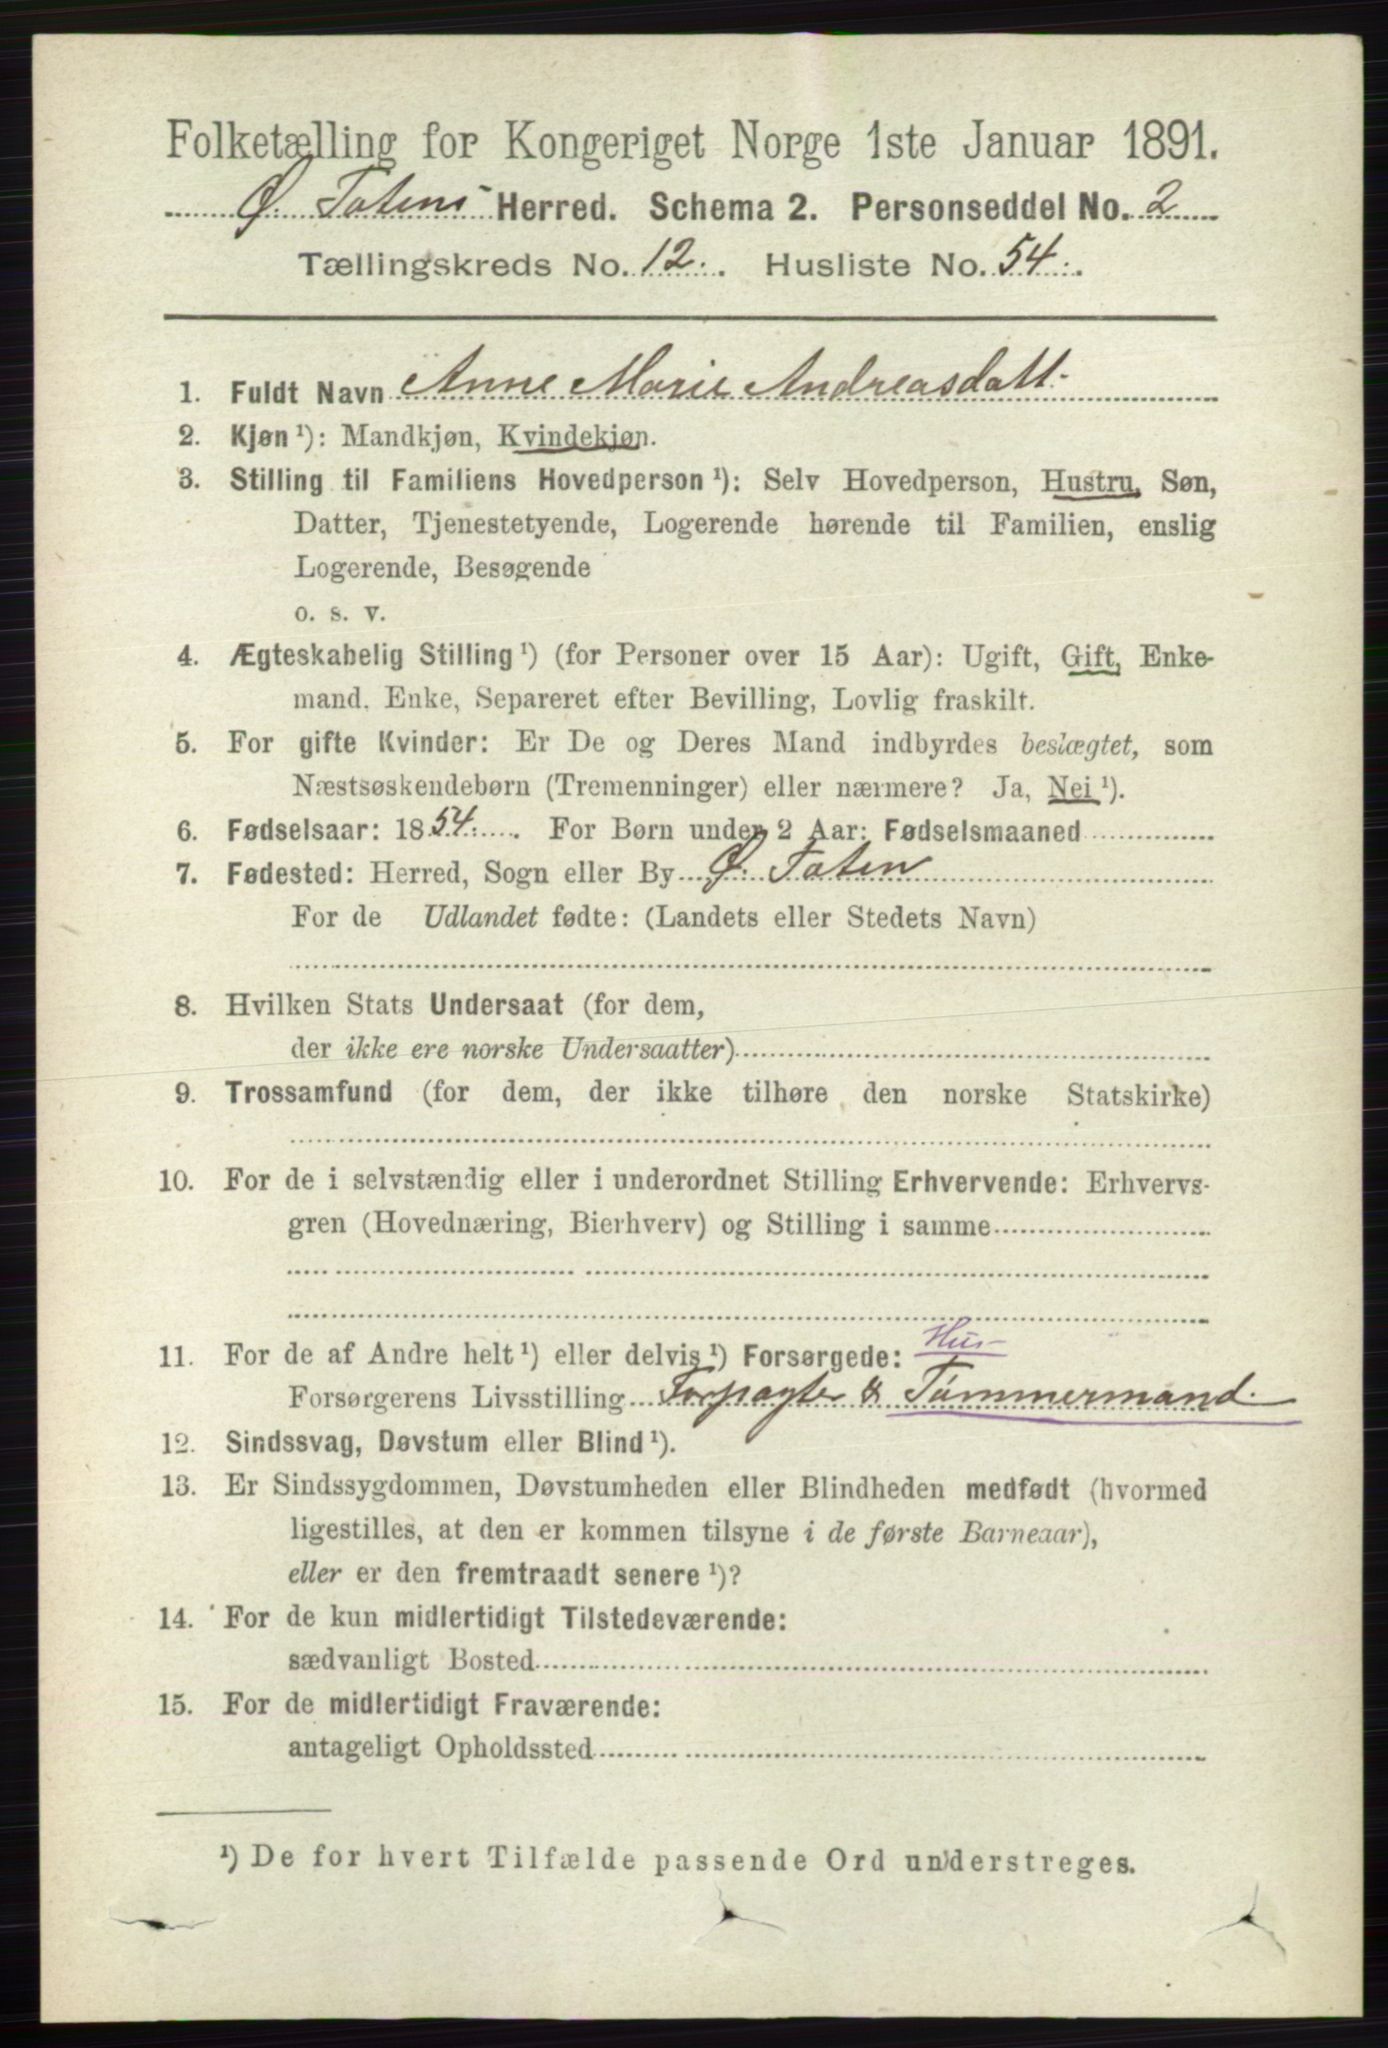 Folketælling for Kongeriget Norge 1ste Januar 1891.
Ø. Totens Herred. Schema 2. Personseddel No. 2
Tællingskreds No. 12. Husliste No. 54.
1. Fuldt Navn Anne Marie Andreasdatt.
2. Kjøn ¹): Mandkjøn, Kvindekjøn.
3. Stilling til Familiens Hovedperson ¹): Selv Hovedperson, Hustru, Søn,
Datter, Tjenestetyende, Logerende hørende til Familien, enslig
Logerende, Besøgende
o. s. v.
4. Ægteskabelig Stilling ¹) (for Personer over 15 Aar): Ugift, Gift, Enke-
mand, Enke, Separeret efter Bevilling, Lovlig fraskilt.
5. For gifte Kvinder: Er De og Deres Mand indbyrdes beslægtet, som
Næstsøskendebørn (Tremenninger) eller nærmere? Ja, Nei ¹).
6. Fødselsaar: 1854. For Børn under 2 Aar: Fødselsmaaned
7. Fødested: Herred, Sogn eller By Ø. Toten
For de Udlandet fødte: (Landets eller Stedets Navn)
8. Hvilken Stats Undersaat (for dem,
der ikke ere norske Undersaatter)
9. Trossamfund (for dem, der ikke tilhøre den norske Statskirke)
10. For de i selvstændig eller i underordnet Stilling Erhvervende: Erhvervs-
gren (Hovednæring, Bierhverv) og Stilling i samme
Hus-
11. For de af Andre helt ¹) eller delvis ¹) Forsørgede:
Forsørgerens Livsstilling Forpagter & Tømmermand.
12. Sindssvag, Døvstum eller Blind ¹).
13. Er Sindssygdommen, Døvstumheden eller Blindheden medfødt (hvormed
ligestilles, at den er kommen tilsyne i de første Barneaar),
eller er den fremtraadt senere ¹)?
14. For de kun midlertidigt Tilstedeværende:
sædvanligt Bosted
15. For de midlertidigt Fraværende:
antageligt Opholdssted
¹) De for hvert Tilfælde passende Ord understreges.